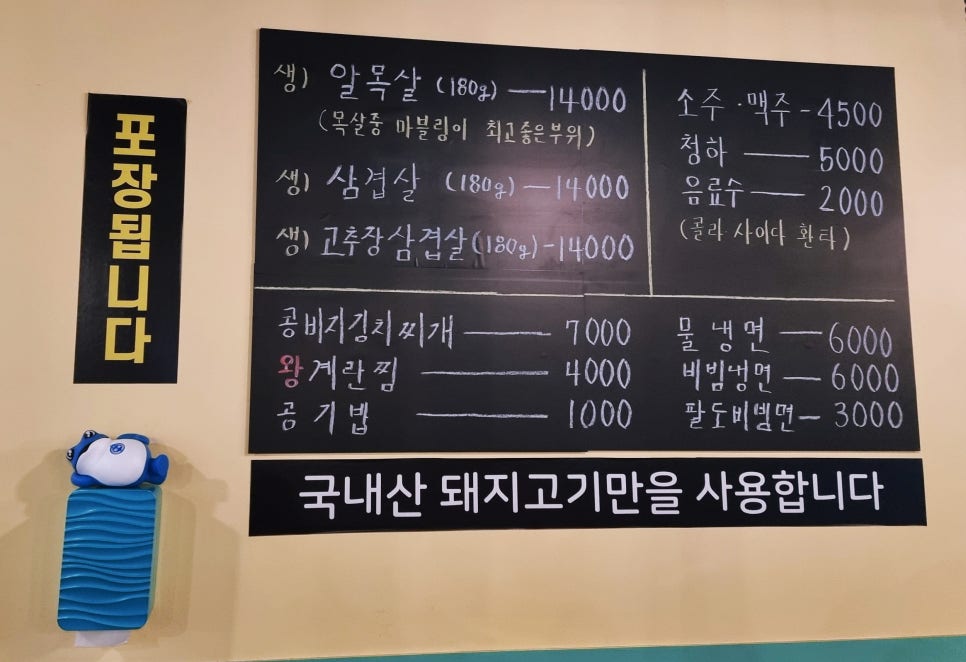 포장됩니다
생) 알목살 (180g) — 14000
(목살중 마블링이 최고좋은부위)
생) 삼겹살 (180g) — 14000
생) 고추장삼겹살 (180g) - 14000
소주 · 맥주 - 4500
청하 — 5000
음료수 — 2000
(콜라 사이다 환타)
콩비지김치찌개 — 7000
왕계란찜 — 4000
공기밥 — 1000
물냉면 — 6000
비빔냉면 — 6000
팔도비빔면 — 3000
국내산 돼지고기만을 사용합니다